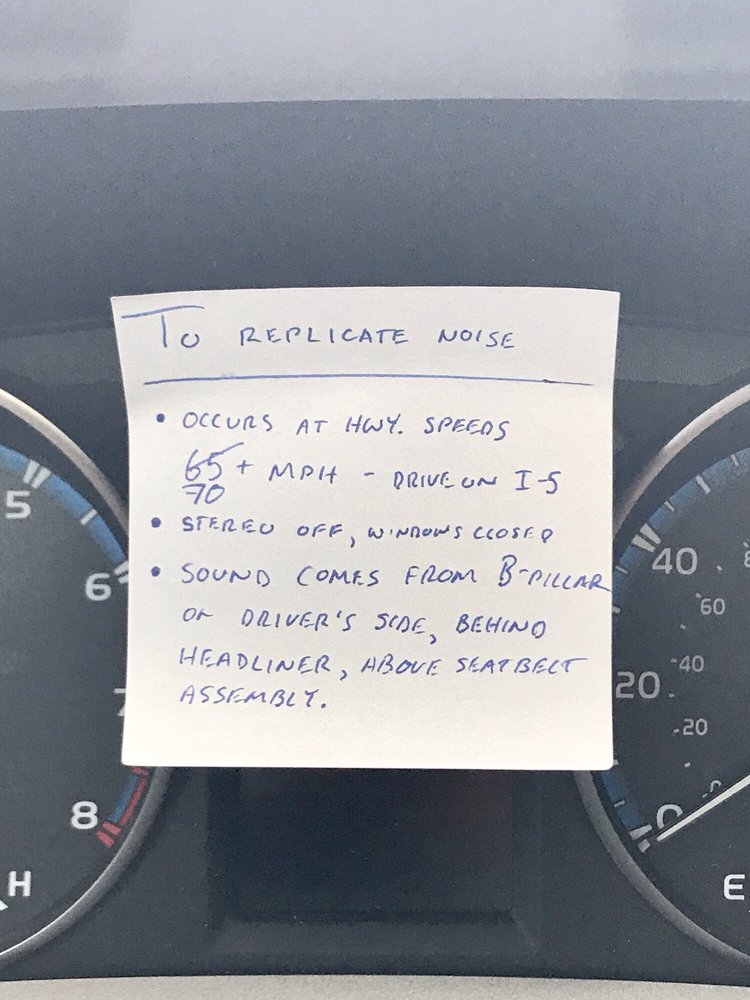 To REPLICATE NOISE
• OCCURS AT HWY. SPEEDS
65+ MPH - DRIVE ON I-5
70
• STEREO OFF, WINDOWS CLOSED
• SOUND COMES FROM B-PILLAR
ON DRIVER'S SIDE, BEHIND
HEADLINER, ABOVE SEATBELT
ASSEMBLY.
5
6
7
8
H
40
60
40
20
20
0
0
E